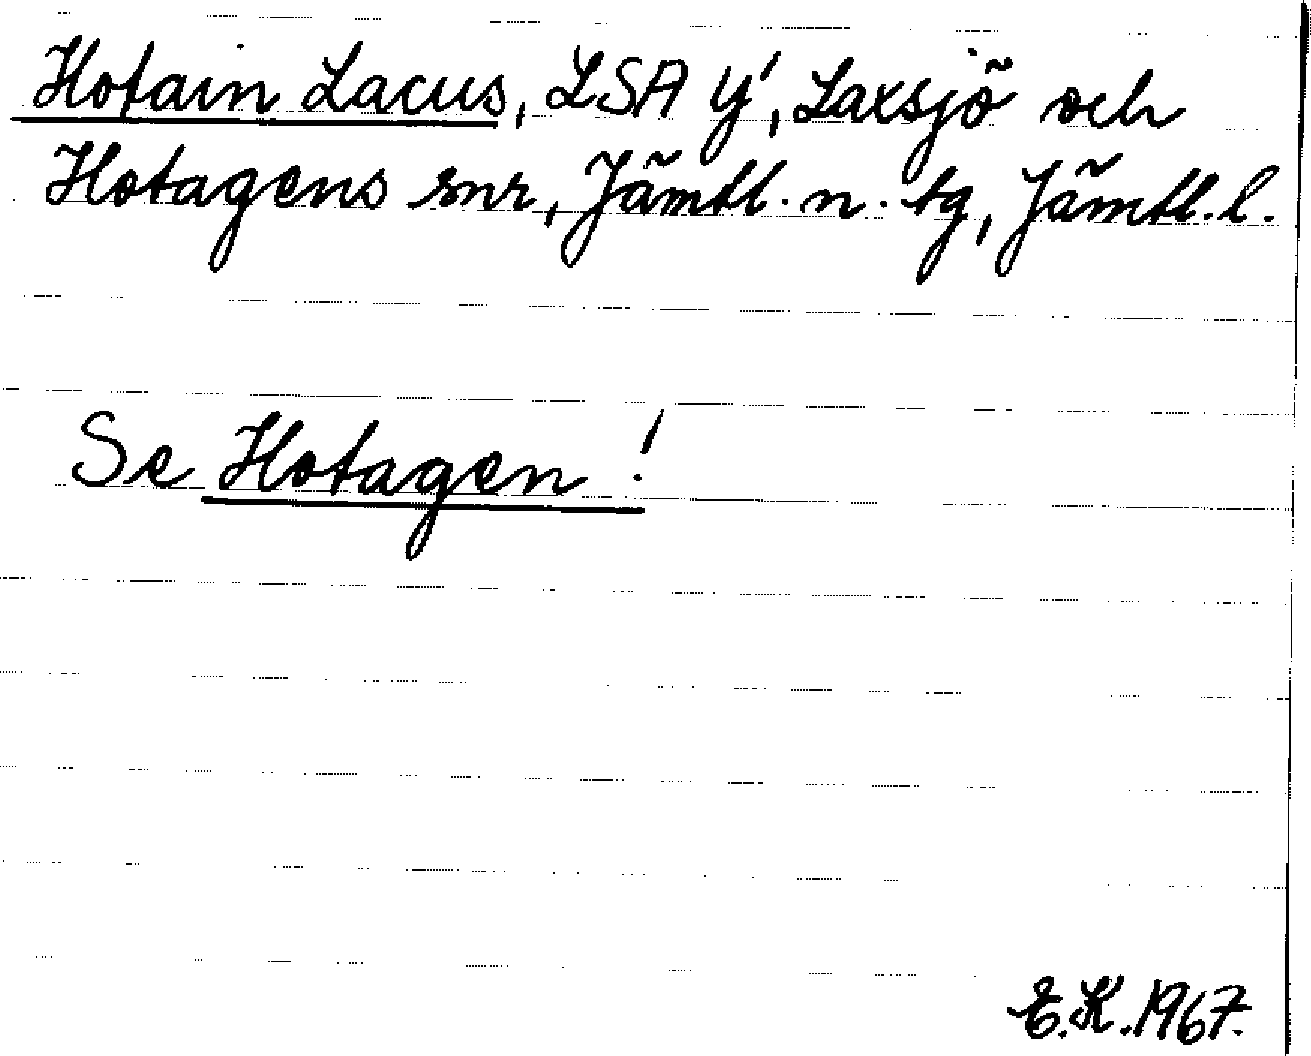 Hotain Lacus, LSA y', Laxsjö och
Hotagens snr, Jämtl. n. tg, Jämtl. l.
Se Hotagen!
E.K. 1967.